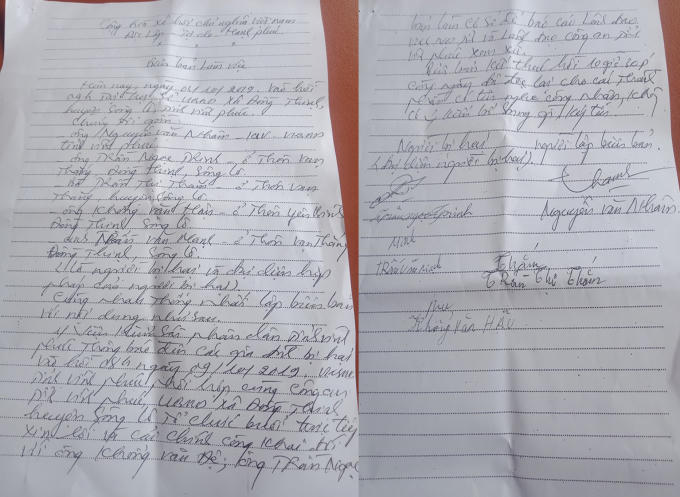 Cộng hòa xã hội chủ nghĩa việt nam
Độc lập Tự do Hạnh phúc
Biên bản làm việc
Hôm nay, ngày 04/10/2019. Vào hồi
tại trụ sở UBND xã Đồng Thịnh,
huyện Sông Lô, tỉnh vĩnh phúc.
Chúng tôi gồm:
- ông Nguyễn văn Nhâm - VKSND
tỉnh vĩnh phúc.
- ông Trần Ngọc Trinh - ở Thôn vạn
Thắng, Đồng Thịnh, Sông Lô.
- bà Trần Thị Thắm - ở Thôn vạn
Thắng, huyện Sông Lô.
- ông Khổng văn Hậu - ở Thôn yên bình
Đồng Thịnh, Sông Lô.
- anh văn - ở Thôn vạn Thắng
Đồng Thịnh, Sông Lô.
(Là người bị hại và đại diện hợp
pháp cho người bị hại).
Cùng nhau Thống nhất lập biên bản
với nội dung như sau:
Viện kiểm sát nhân dân tỉnh vĩnh
phúc Thông báo đến các gia đình bị hại
vào hồi ngày 09/10/2019.
tỉnh vĩnh phúc phối hợp cùng Công an
tỉnh vĩnh phúc, UBND xã Đồng Thịnh
huyện Sông Lô Tổ chức buổi trực tiếp
xin lỗi và cải chính công khai đối
với ông Khổng văn Đệ; ông Trần Ngọc
bản làm cơ sở để báo cáo Lãnh đạo
và Lãnh đạo công an tỉnh
vĩnh phúc xem xét.
Biên bản kết thúc hồi cùng
ngày, đã đọc lại cho các Thành
phần có tên nghe công nhận,
có ý kiến bổ sung gì ký tên.
Người bị hại người lập biên bản.
(Đại diện người bị hại).
Trần Ngọc Trinh
Nguyễn văn Nhâm
Thắm
Trần Thị Thắm
Khổng văn HẬU